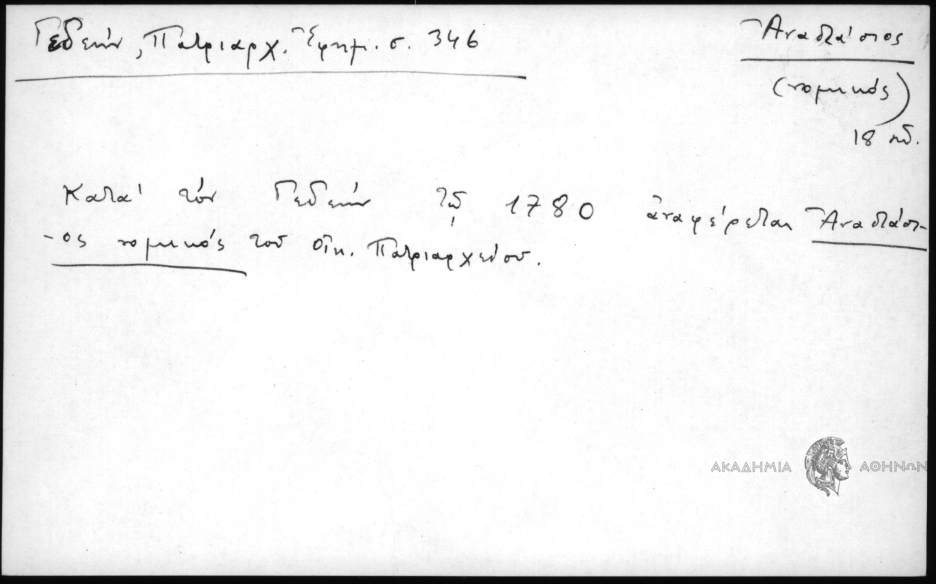 Γεδεών, Πατριαρχ. Ἐφημ. σ. 346
Ἀναστάσιος
(νομικός)
18 αἰ.
Κατά τόν Γεδεών τῷ 1780 ἀναφέρεται Ἀναστάσι-
-ος νομικός τοῦ Οἰκ. Πατριαρχείου.
ΑΚΑΔΗΜΙΑ ΑΘΗΝΩΝ